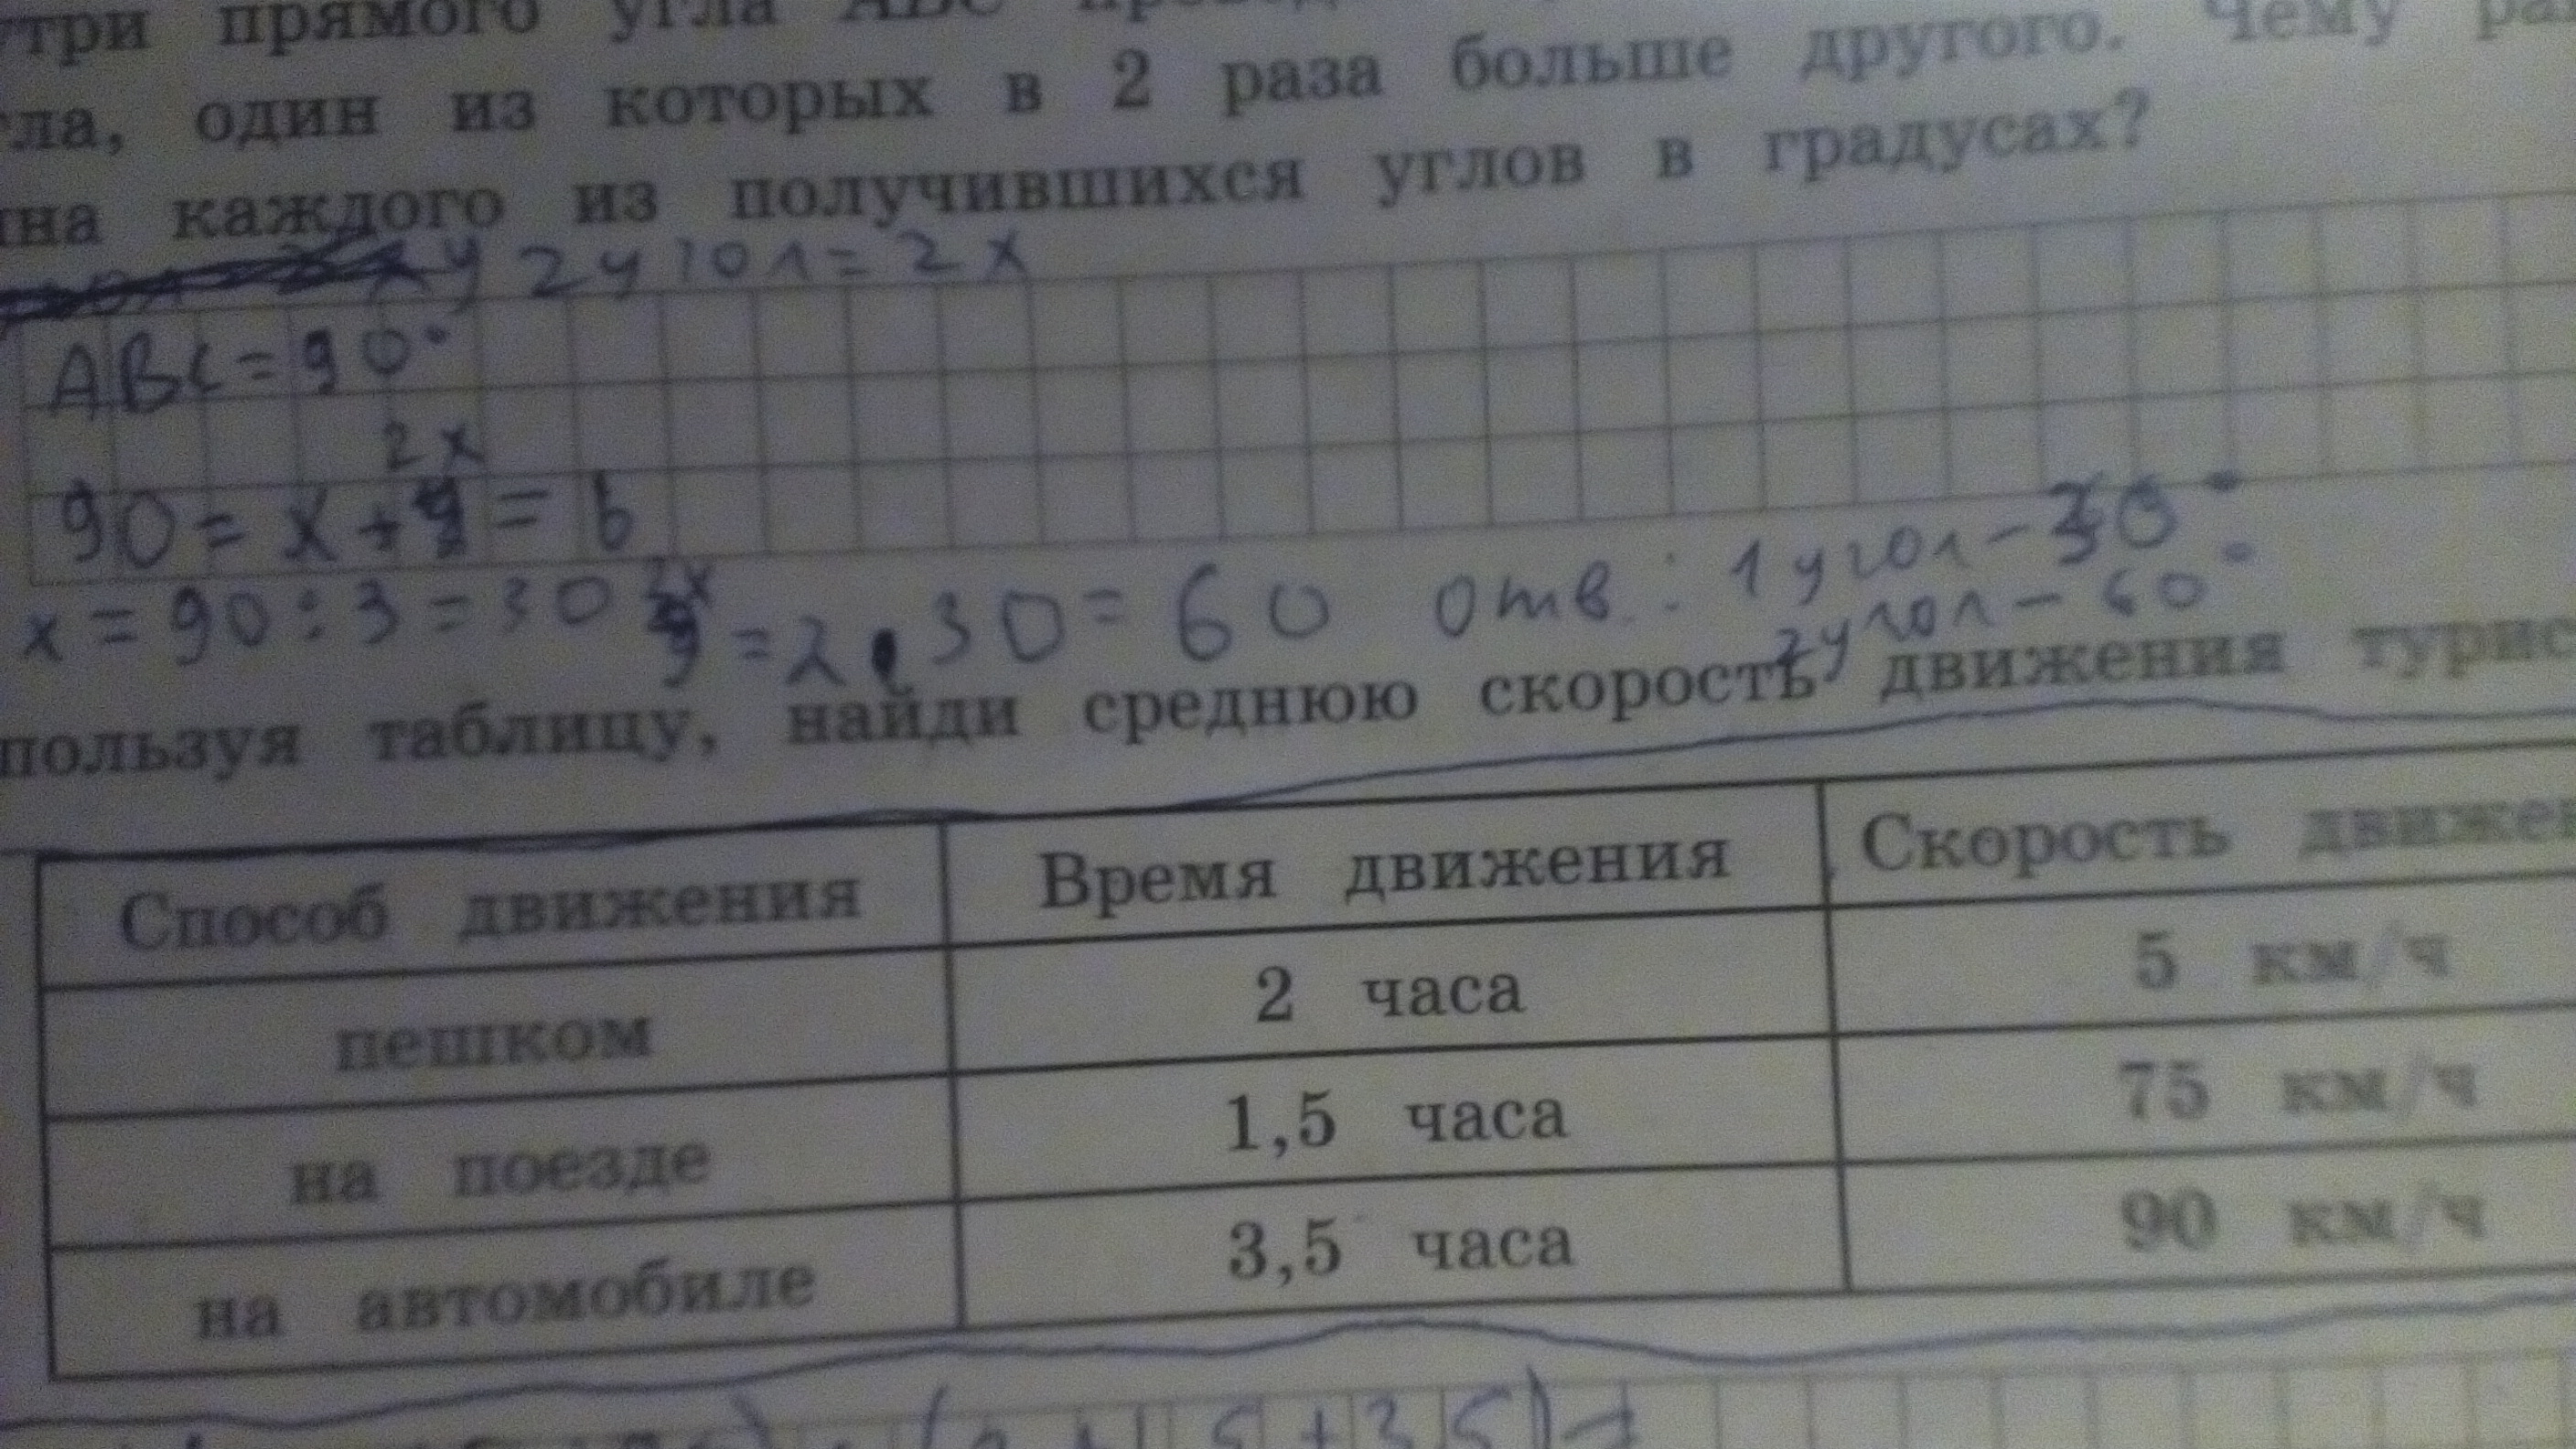 три прямого угла ABC
ла, один из которых в 2 раза больше другого. Чему
на каждого из получившихся углов в градусах?
у 2 угол = 2x
ABC = 90°
2x
90 = x + =
x = 90 : 3 = 30 2x = 2 · 30 = 60 отв. : 1 угол - 30°
2 угол - 60°
пользуя таблицу, найди среднюю скорость движения турис
Способ движения Время движения Скорость движе
пешком 2 часа 5 км/ч
на поезде 1,5 часа 75 км/ч
на автомобиле 3,5 часа 90 км/ч